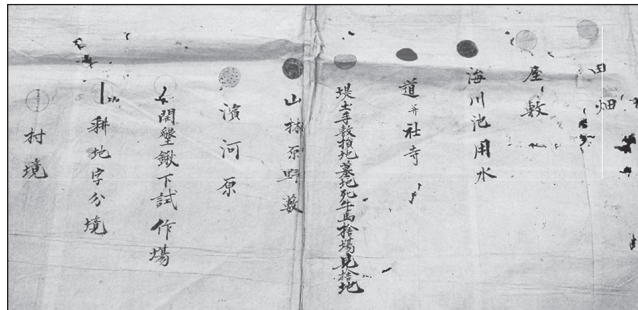 田畑
屋敷
海川池用水
道并社寺
堤土手敷損地墓地死牛馬捨場見捨地
山林原野藪
濱河原
開墾鍬下試作場
耕地字分境
村境